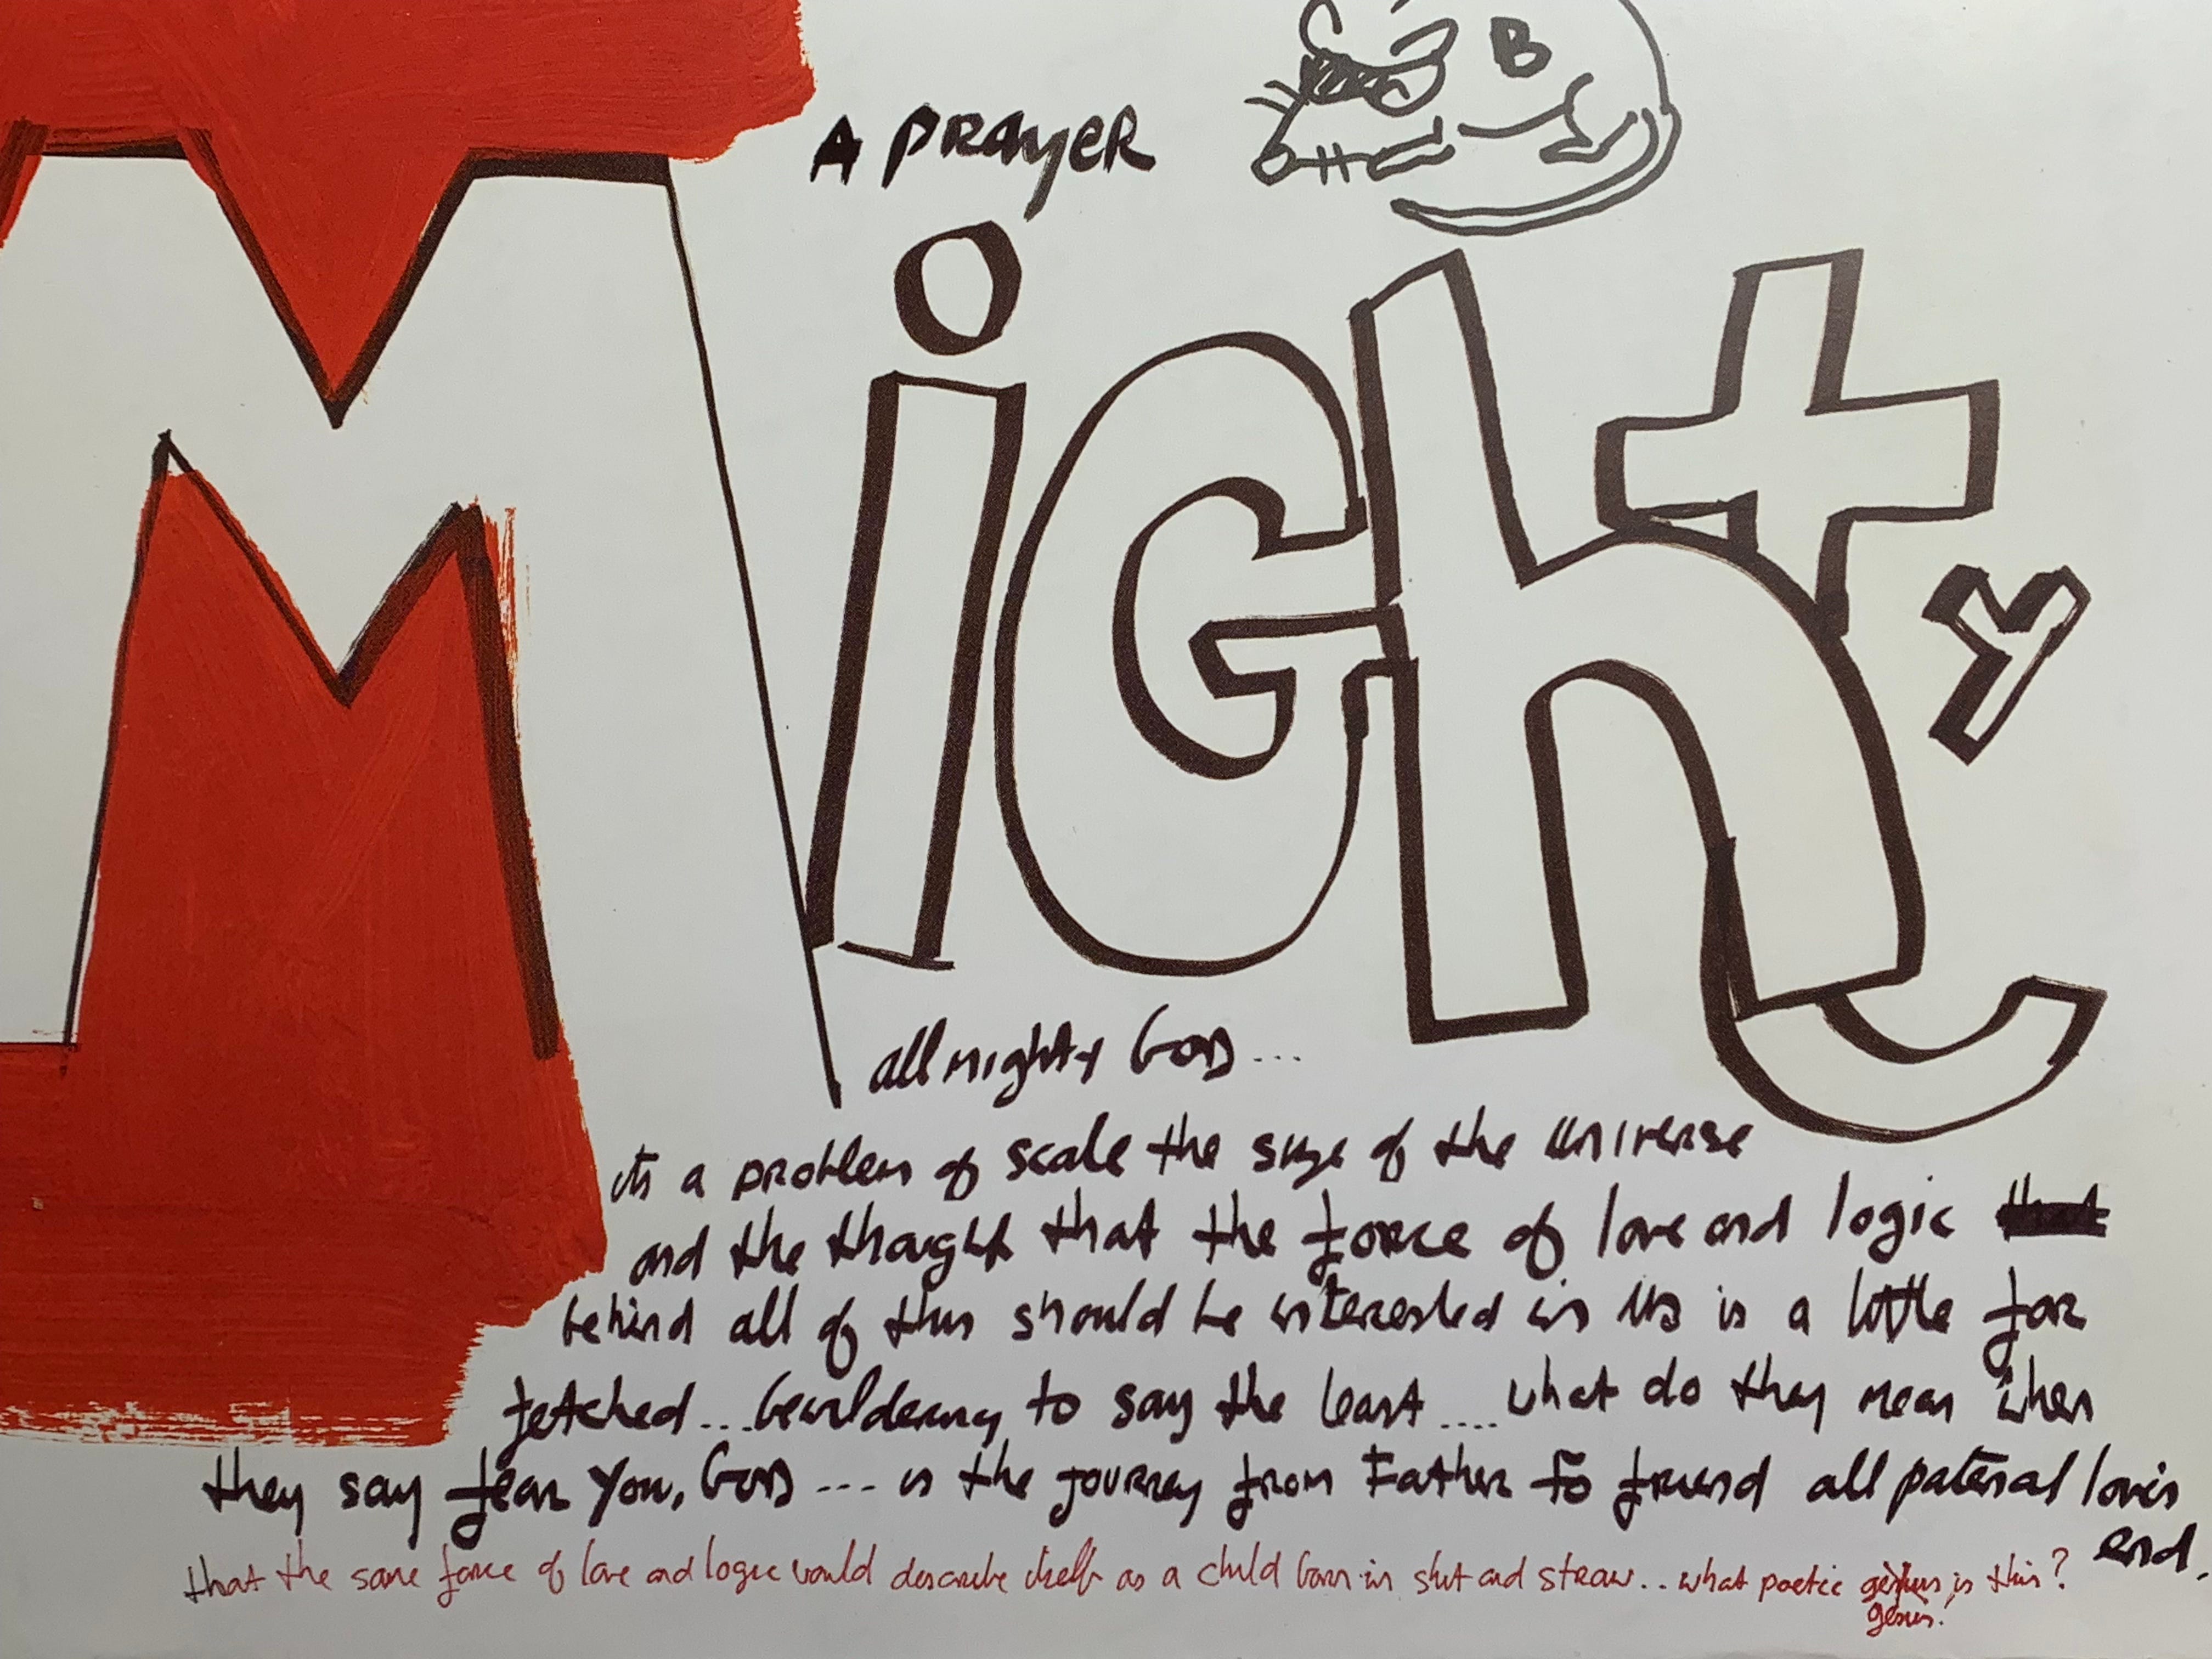 A PRAYER
B
MiGhty
all mighty God...
its a problem of scale the size of the universe
and the thought that the force of love and logic that
behind all of this should be interested in us is a little far
fetched... bewildering to say the least .... what do they mean when
they say fear you, God --- is the journey from Father to friend all paternal loves
end.
that the same force of love and logic would describe itself as a child born in shit and straw.. what poetic genius is this?
genius!